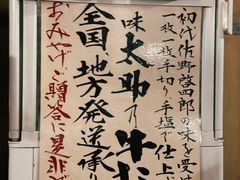 初代佐野啓四郎の味を受け
一枚一枚手切り手塩で仕上
味太助の牛た
全国地方発送承り
おみやげ、ご贈答に是非